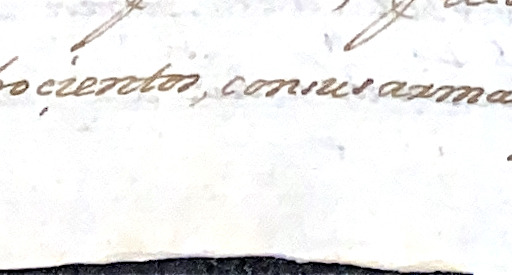 hoçientos, con sus arma